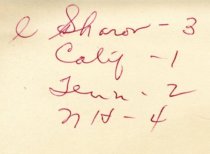 e Sharon - 3
Calif - 1
Tenn - 2
NH - 4